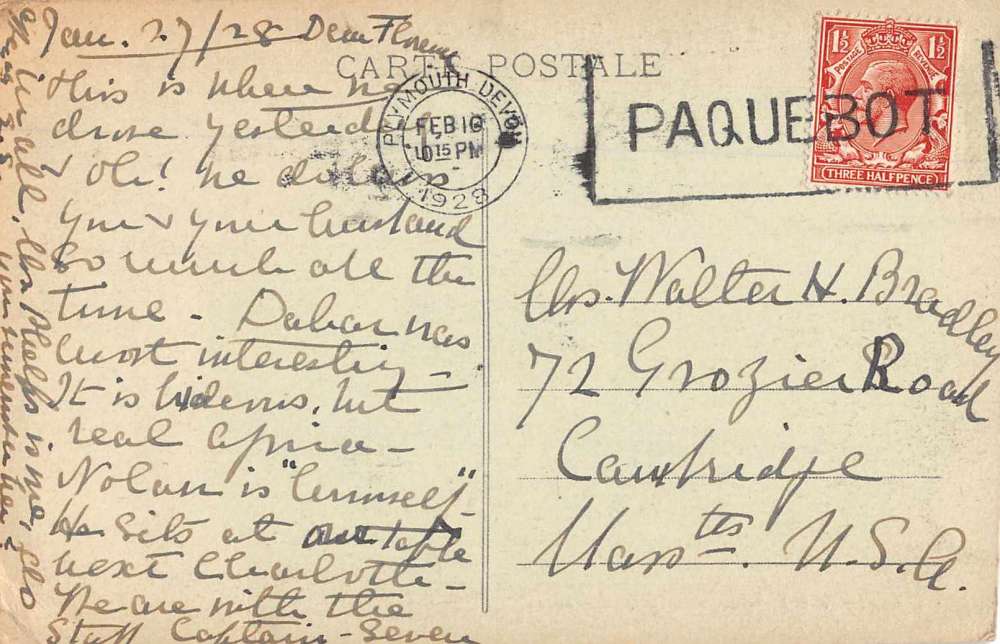 Jan. 27/28 Dear Florence
This is where we
drove yesterday
& Oh! We
you & your husband
so much all the
time - Dakar was
most interesting -
It is hideous, but
real Africa -
Nolan is "himself" -
He sits at our table
next Charlotte -
We are with the
Staff Captain - Seven
in all. Mrs Phelps is
you remember her
CARTE POSTALE
PLYMOUTH DEVON
FEB 10
10 15 PM
1928
PAQUEBOT
1½ 1½
POSTAGE REVENUE
THREE HALFPENCE
Mrs. Walter H. Bradley
72 Grozier Road
Cambridge
Mass tts. U.S.A.